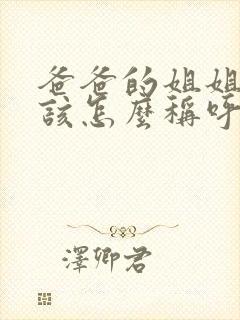 爸爸的姐姐
該怎麼稱呼
澤卿君